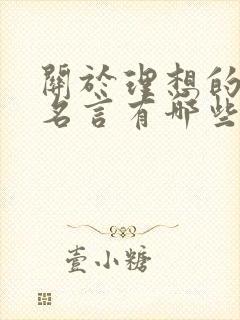 關於理想的
名言有哪些
壹小糖